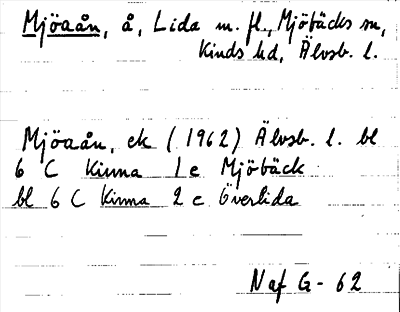 Mjöaån, å, Lida m. fl., Mjöbäcks sn,
Kinds hd, Älvsb. l.
Mjöaån, ek (1962) Älvsb. l. bl
6 C Kinna 1 e Mjöbäck
bl 6 C Kinna 2 e Överlida
Naf G - 62